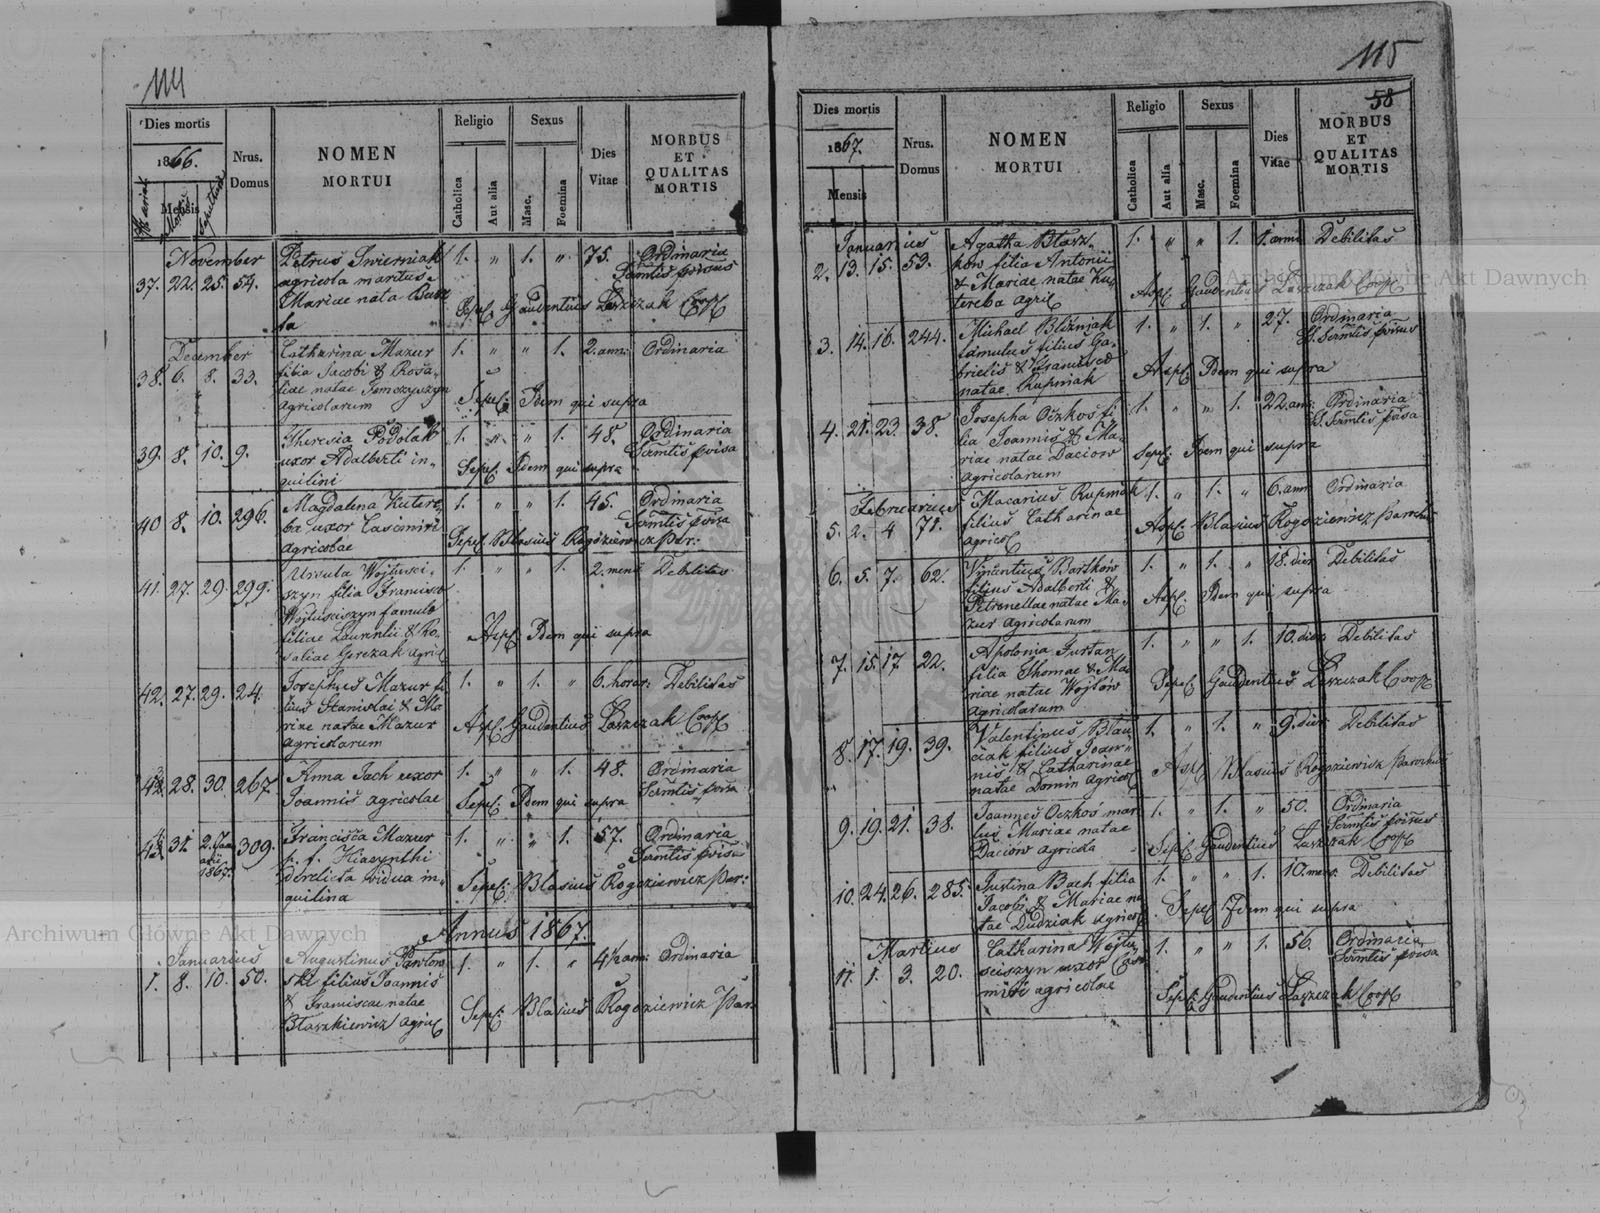 114
Dies mortis
1866.
Mensis
Mortis
Sepulturae
Nrus.
Domus
NOMEN
MORTUI
Religio
Catholica
Aut alia
Sexus
Masc.
Foemina
Dies
Vitae
MORBUS
ET
QUALITAS
MORTIS
November
37. 22. 25. 54.
Petrus Swierniak
agricola maritus
Mariae nata
1. " 1. " 75. Ordinaria
Sepel. Gaudentius Laszczak Coop
December
38. 6. 8. 33.
Catharina Mazur
filia Jacobi & Rosa-
liae natae
Agricolarum
1. " " 1. 2. ann: Ordinaria
Sepel: Idem qui supra
39. 8. 10. 9.
Theresia Podolak
uxor Adalberti in-
quilini
1. " " 1. 48. Ordinaria
Sepel. Idem qui supra
40 8. 10. 296.
Magdalena Kutere-
ba uxor Casimiri
agricolae
1. " " 1. 45. Ordinaria
Sepel. Blasius Rogoziewicz Par:
41. 27. 29. 299.
Ursula Wojtusci-
szyn filia Francisca
Wojtusciszyn famula
filiae Laurentii & Ro-
saliae Gerczak agric
1. " " 1. 2. mens Debilitas
Idem qui supra
42. 27. 29. 24.
Josephus Mazur fi
lius Stanislai & Ma
riae natae Mazur
agricolarum
1. " 1. " 6. horar: Debilitas
Gaudentius Laszczak Coop
28. 30. 267.
Anna Jach uxor
Joannis agricolae
1. " " 1. 48. Ordinaria
Sepel: Idem qui supra
31. 2. Janu
arii
1867. 309.
Francisca Mazur
p. f. Hiacynthi
derelicta vidua in-
quilina
1. " " 1. 57. Ordinaria
Sepel: Blasius Rogoziewicz Par:
Annus 1867.
Januarius
1. 8. 10. 50.
Augustinus Pawlow
ski filius Joannis
& Franciscae natae
Blaszkiewicz agric
1. " 1. " 4½ ann: Ordinaria
Sepel: Blasius Rogoziewicz Par.
115
58
Dies mortis
1867.
Mensis
Nrus.
Domus
NOMEN
MORTUI
Religio
Catholica
Aut alia
Sexus
Masc.
Foemina
Dies
Vitae
MORBUS
ET
QUALITAS
MORTIS
Januarius
2. 13. 15. 53.
Agatha Blasz-
kow filia Antonii
& Mariae natae Ku-
tereba agric
1. " " 1. Debilitas
Gaudentius Laszczak Coop
3. 14. 16. 244.
Michael Bliźniak
famulus filius Ga-
brielis & Franciscae
natae Rupniak
1. " 1. " 27. Ordinaria
Idem qui supra
4. 21. 23. 38.
Josepha Oczkoś fi
lia Joannis & Ma-
riae natae Daciow
agricolarum
1. " " 1. 22. ann: Ordinaria
Sepel: Idem qui supra
Februarius
5. 2. 4 71.
Macarius Rupniak
filius Catharinae
agricol
1. " 1. " 6. ann Ordinaria
Blasius Rogoziewicz Parochus
6. 5. 7. 62.
Vincentius Bartków
filius Adalberti &
Petronellae natae Ma-
zur agricolarum
1. " 1. " 18. dier Debilitas
Idem qui supra
7. 15. 17 22.
Apolonia Justan
filia Thomae & Ma-
riae natae Wojtów
agricolarum
1. " " 1. 10. dier Debilitas
Sepel Gaudentius Laszczak Coop
8. 17. 19. 39.
Valentinus Blau
ciak filius Joan-
nis & Catharinae
natae Domin agricol
1. " 1. " 9. dier Debilitas
Blasius Rogoziewicz Parochus
9. 19. 21. 38.
Joannes Oczkoś mari
tus Mariae natae
Daciow agricola
1. " 1. " 50. Ordinaria
Sepel: Gaudentius Laszczak Coop
10. 24. 26. 285.
Justina Bach filia
Jacobi & Mariae na
tae Dudziak agricol
1. " " 1. 10. mens: Debilitas
Sepel Idem qui supra
Martius
11. 1. 3. 20.
Catharina Wojtu-
sciszyn uxor Casi
miri agricolae
1. " " 1. 56. Ordinaria
Sepel: Gaudentius Laszczak Coop
Archiwum Główne Akt Dawnych
Archiwum Główne Akt Dawnych